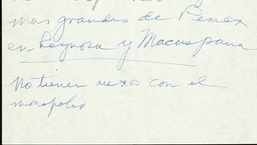 mas grandes de Pemex
en Reynosa y Macuspana
No tienen nexos con el
monopolio